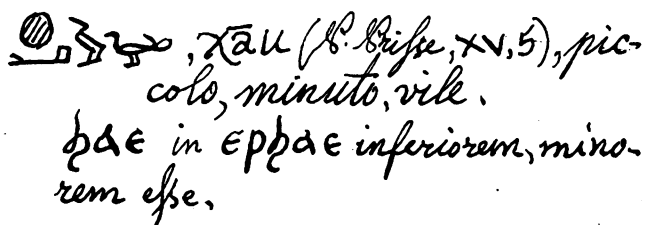 , χāu (P. Prisse, XV, 5), pic-
colo, minuto, vile.
ϧⲁⲉ in ⲉⲣϧⲁⲉ inferiorem, mino-
rem esse.